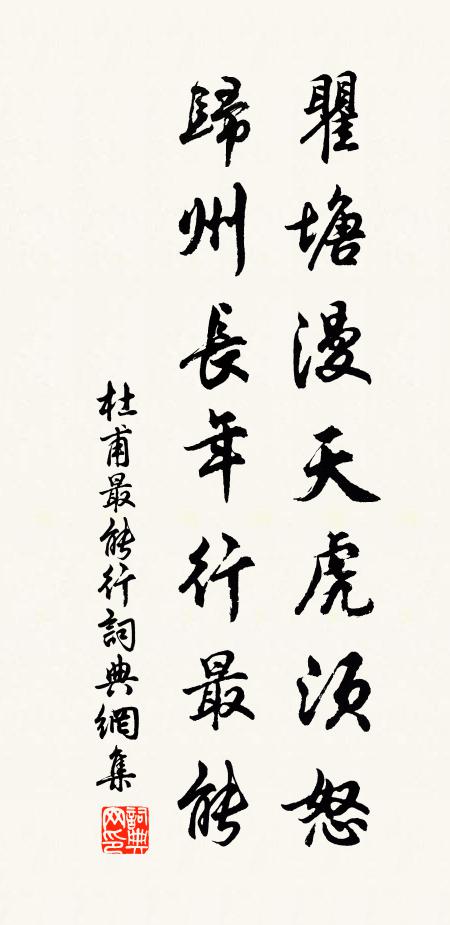 瞿塘漫天虎須怒
歸州長年行最能
杜甫最能行詞典網集
詞典网印